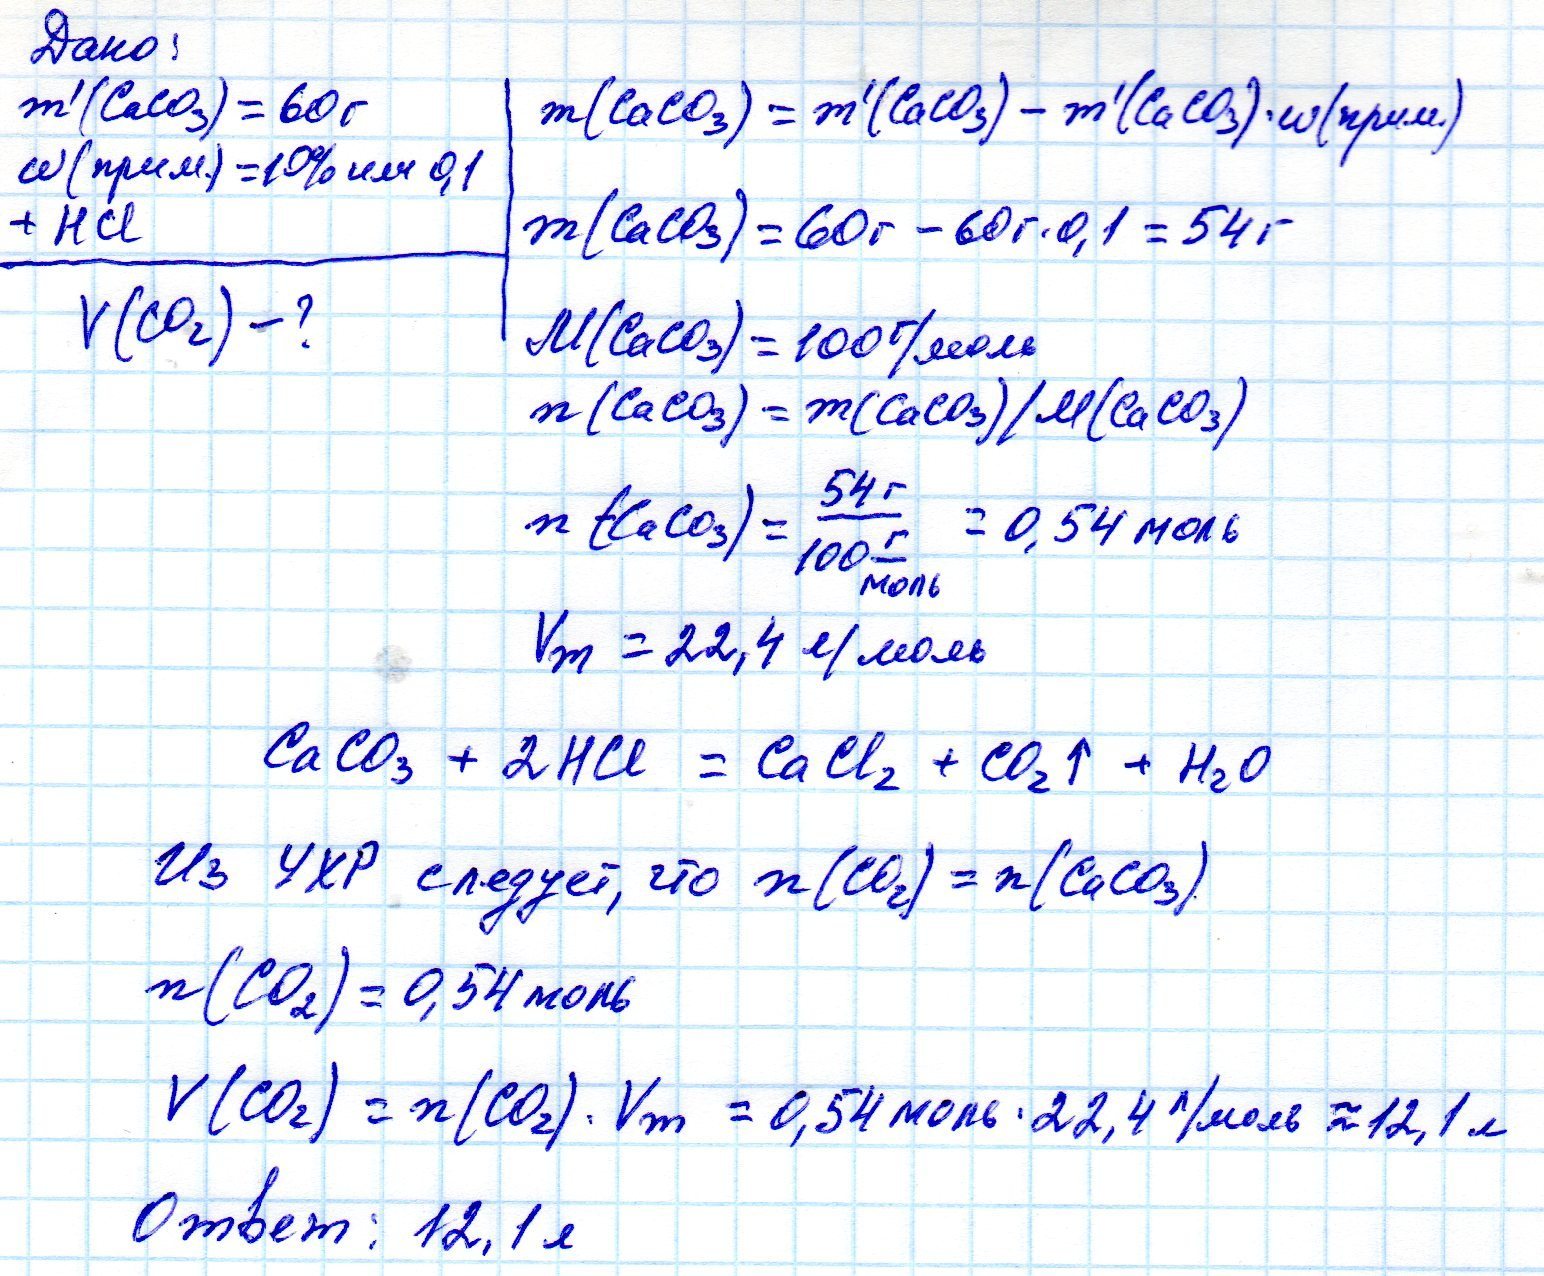 Дано:
m'(CaCO₃) = 60г
w(прим.) = 10% или 0,1
+ HCl
V(CO₂) – ?
m(CaCO₃) = m'(CaCO₃) – m'(CaCO₃)·w(прим.)
m(CaCO₃) = 60г – 60г·0,1 = 54г
M(CaCO₃) = 100г/моль
n(CaCO₃) = m(CaCO₃)/M(CaCO₃)
n(CaCO₃) = 54г / 100 г/моль = 0,54 моль
Vm = 22,4 л/моль
CaCO₃ + 2HCl = CaCl₂ + CO₂↑ + H₂O
Из УХР следует, что n(CO₂) = n(CaCO₃)
n(CO₂) = 0,54 моль
V(CO₂) = n(CO₂)·Vm = 0,54 моль·22,4 л/моль ≈ 12,1 л
Ответ: 12,1 л